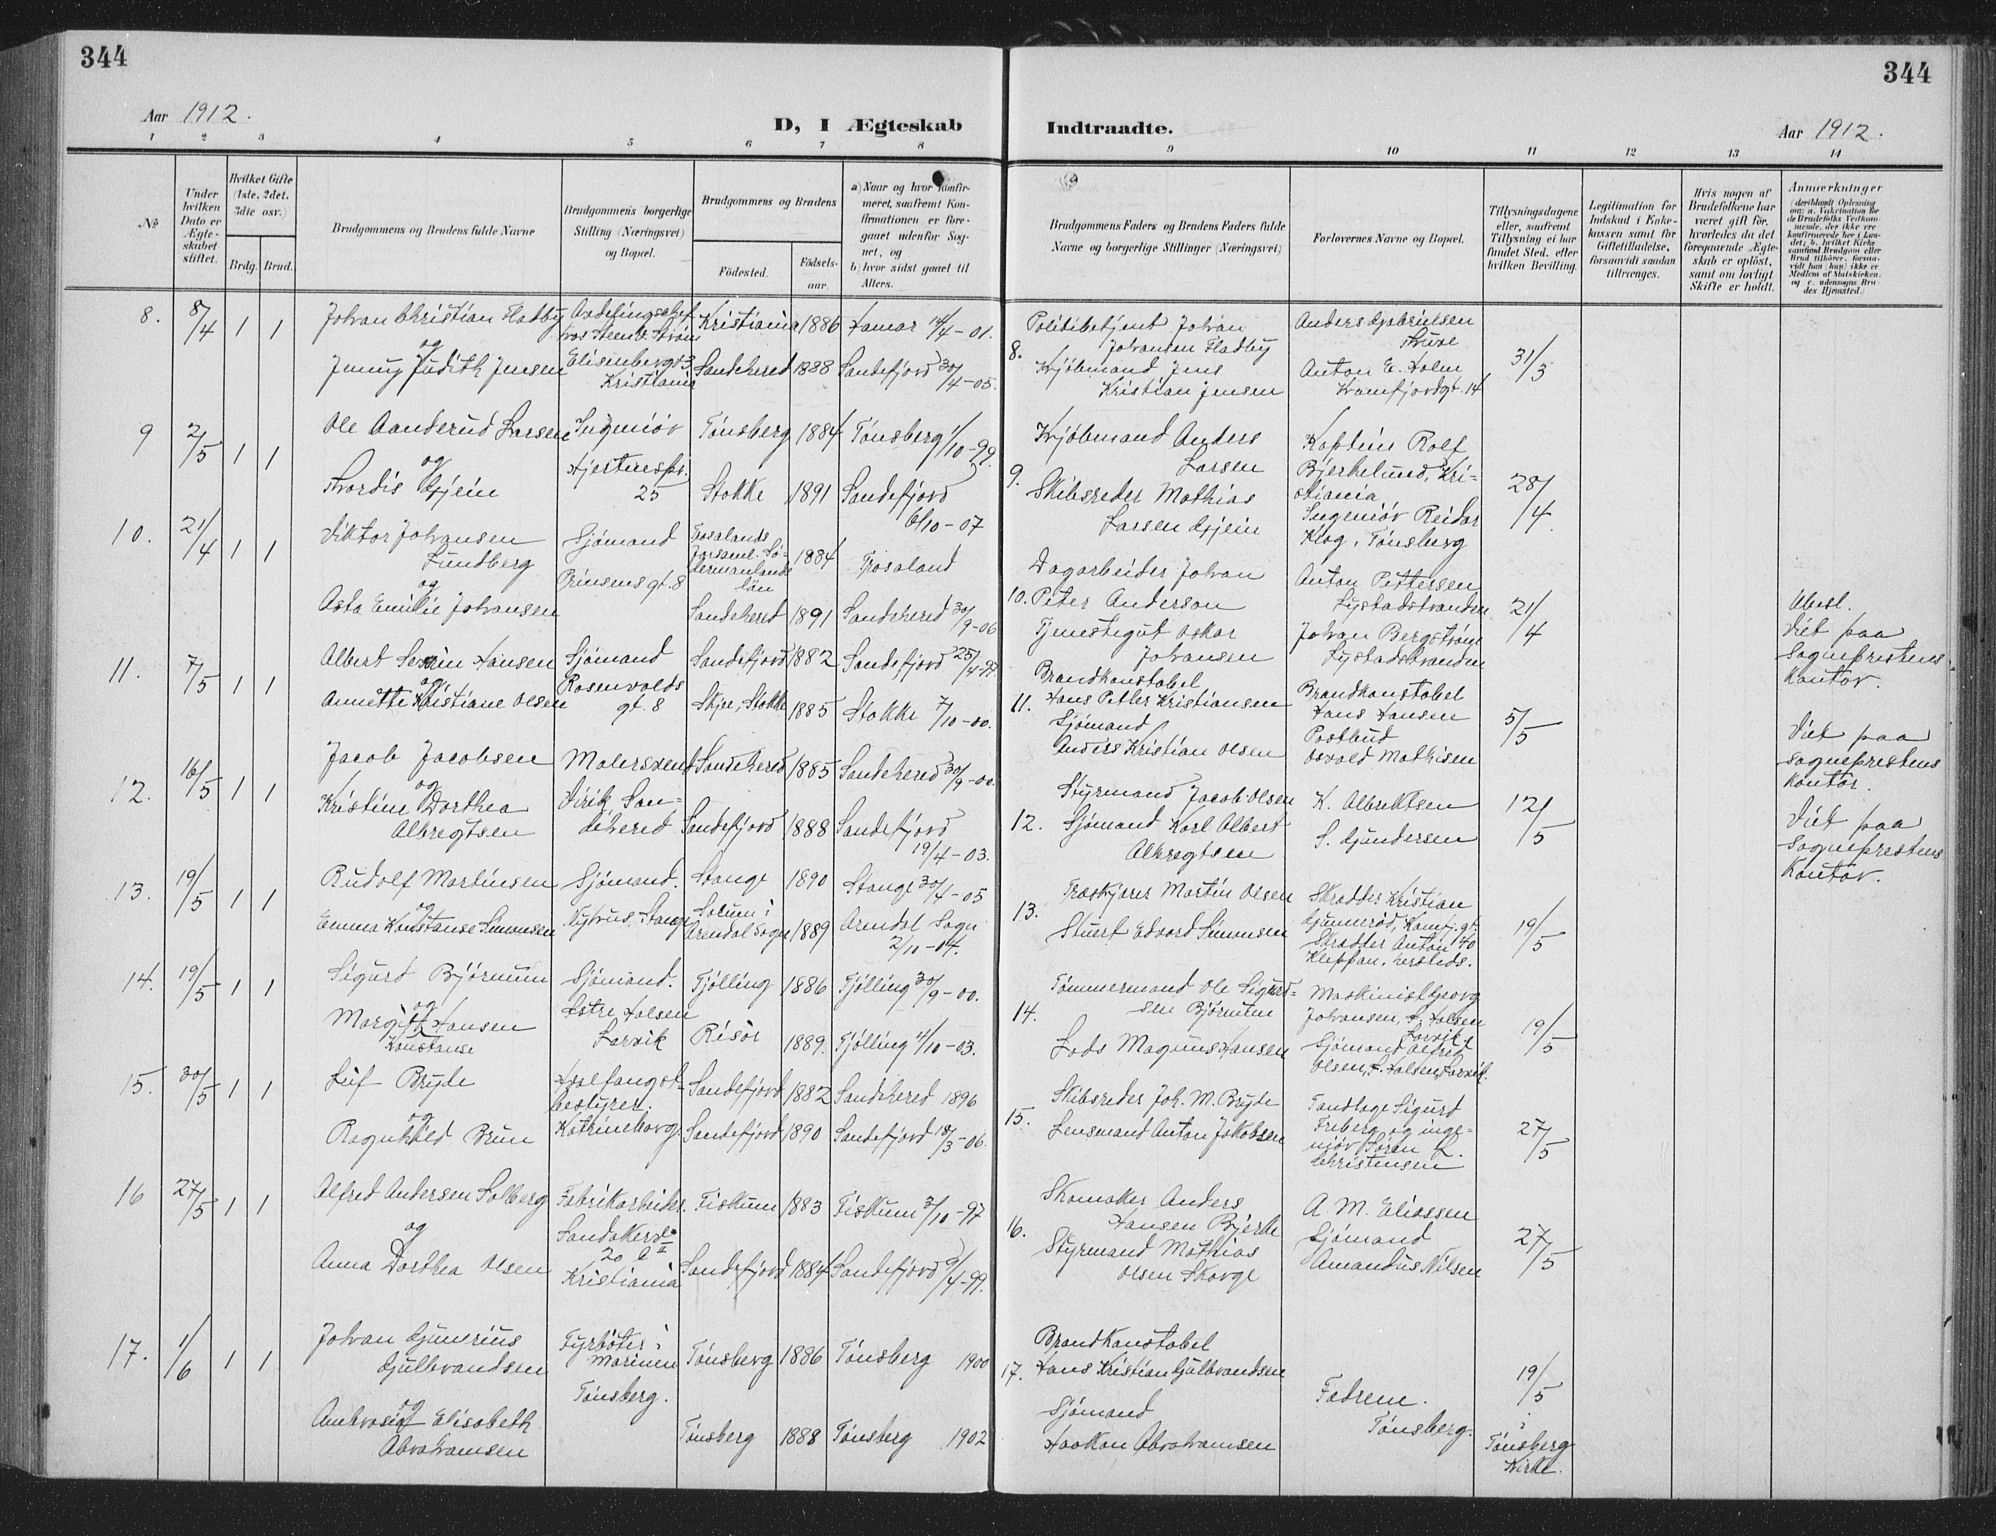 344
344
Aar 1912.
D, I Ægteskab
Indtraadte.
Aar 1912.
1 2 3 4 5 6 7 8
9 10 11 12 13 14
№
Under hvilken Dato er Ægteskabet stiftet.
Hvilket Gifte (1ste, 2det, 3die osv.)
Brdg. Brud.
Brudgommens og Brudens fulde Navne
Brudgommens borgerlige Stilling (Næringsvei) og Bopæl.
Brudgommens og Brudens
Fødested.
Fødselsaar.
a) Naar og hvor konfirmeret, saafremt Konfirmationen er foregaaet udenfor Sognet, og
b) hvor sidst gaaet til Alters.
Brudgommens Faders og Brudens Faders fulde Navne og borgerlige Stillinger (Næringsvei)
Forlovernes Navne og Bopæl.
Tillysningsdagene eller, saafremt Tillysning ei har fundet Sted, efter hvilken Bevilling.
Legitimation for Indskud i Enkekassen samt for Giftetilladelse, forsaavidt saadan tiltrænges.
Hvis nogen af Brudefolkene har været gift før, hvorledes da det foregaaende Ægteskab er opløst, samt om lovligt Skifte er holdt.
Anmærkninger
8. 8/4 1 1 Johan Christian Fladby Kristiania 1886 Hamar 14/4-01.
og
Jenny Judith Jensen Elisenbergv. 3 Kristiania Sandeherred 1888 Sandefjord 30/4-05.
8. Politibetjent Johan Johansen Fladby Anders Gabrielsen 31/3
Kjøbmand Jens Kristian Jensen Anton E. Holm
9 2/5 1 1 Ole Aanderud Larsen Ingeniør Tønsberg 1884 Tønsberg 1/10-99.
og
Thordis Gjein 25 Stokke 1891 Sandefjord 6/10-07
9. Kjøbmand Anders Larsen Kaptein Rolf Bjerkelund, Kristiania 28/4
Skibsreder Mathias Larsen Gjein Ingeniør Reidar Klog, Tønsberg
10. 21/4 1 1 Viktor Johansen Lundberg Sjømand Prinsensgt. 8 1884 Trosaland
og
Asta Emilie Johansen Sandeherred 1891 Sandeherred 30/9-06
10. Dagarbeider Johan Peter Anderson Anton Pettersen Lystadstranden 21/4
Tjenestegut Oskar Johansen Johan Bergstrøm Lystadstranden
Viet paa Sogneprestens Kontor.
11. 7/5 1 1 Albert Severin Hansen Sjømand Sandefjord 1882 Sandefjord 25/4-97
og
Annette Kristiane Olsen Rosenvoldsgt. 8 Skjee, Stokke 1885 Stokke 7/10-00.
11. Brandkonstabel Hans Petter Kristiansen Brandkonstabel Hans Hansen 5/5
Sjømand Anders Kristian Olsen Postbud Osvald Mathisen
Viet paa Sogneprestens Kontor.
12. 16/5 1 1 Jacob Jacobsen Malersvend Sandeherred 1885 Sandeherred 30/9-00.
og
Kristine Dorthea Albregtsen Virik, Sandeherred Sandefjord 1888 Sandefjord 19/4-03.
12. Styrmand Jacob Olsen K. Albrektsen 12/5
Sjømand Karl Albert Albregtsen S. Gundersen
Viet paa Sogneprestens Kontor.
13. 19/5 1 1 Rudolf Martinsen Sjømand. Stange 1890 Stange 30/4-05
og
Emma Konstanse Simonsen Nyhus, Stange Solum i Arendal sogn 1889 Arendal Sogn 2/10-04.
13. Træskjærer Martin Olsen Skrædder Kristian Gunnerød, 19/5
Stuert Edvard Simonsen Skrædder Anton Kleppan,
14. 19/5 1 1 Sigurd Bjørnum Sjømand. Tjølling 1886 Tjølling 30/9-00.
og
Margit Konstanse Hansen Østre Halsen Larvik Risør 1889. Tjølling 4/10-03.
14. Tømmermand Ole Sigurdsen Bjørnum Maskinist Georg Johansen, Ø. Halsen Larvik 19/5
Lods Magnus Hansen Sjømand Alfred Olsen, Ø. Halsen, Larvik.
15. 30/5 1 1 Leif Bryde Hvalfangstbestyrer. Sandefjord 1882 Sandeherred 1896
og
Ragnhild Bruun Katrineborg Sandefjord 1890 Sandefjord 18/3-06.
15. Skibsreder Joh. M. Bryde Tandlæge Sigurd Friberg og ingeniør Søren L. Christensen 27/5
Lensmand Anton Jakobsen
16 27/5 1 1 Alfred Andersen Solberg Fabrikarbeider Fiskum 1883 Fiskum 3/10-97
og
Anna Dorthea Olsen Sandakerv. 20 Kristiania Sandefjord 1884 Sandefjord 9/4-99.
16. Skomaker Anders Hansen Bjerke A. M. Eliassen 27/5
Styrmand Mathias Olsen Skorge Sjømand Amandus Nilsen
17. 1/6 1 1 Johan Gunerius Gulbrandsen Fyrbøter i Marinen Tønsberg 1886 Tønsberg 1900
og
Elisabeth Abrahamsen Tønsberg. Tønsberg 1888 Tønsberg 1902
17. Brandkonstabel Hans Kristian Gulbrandsen Fædrene. 19/5
Sjømand Haakon Abrahamsen Tønsberg. i Tønsberg Kirke.